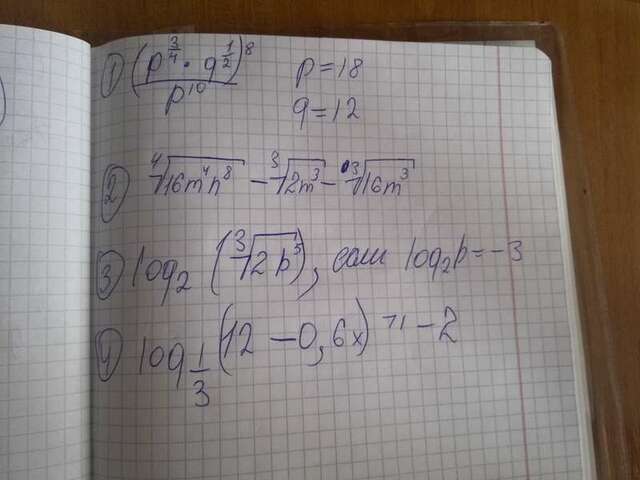 1) (p^{3/4} · q^{1/2})^8 / p^{10}    p = 18
q = 12
2) ∜(16m^4n^8) - ∛(2m^3) - ∛(16m^3)
3) log_2 (∛(2p^5)), если log_2 p = -3
4) log_{1/3} (12 - 0,6x) ⩾ -2